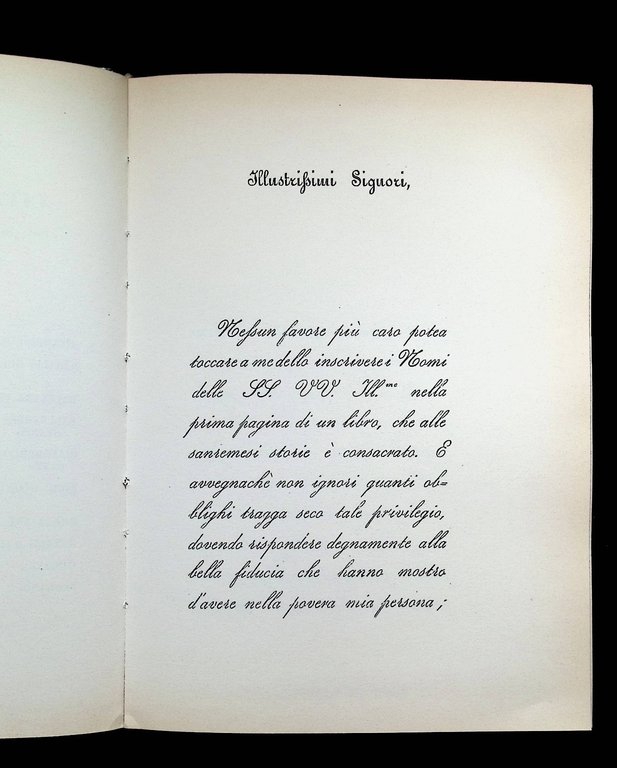 Illustrißimi Signori,
Neßun favore più caro potea
toccare a me dello inscrivere i Nomi
delle SS. VV. Ill.me nella
prima pagina di un libro, che alle
sanremesi storie è consacrato. E
avvegnachè non ignori quanti ob=
blighi tragga seco tale privilegio,
dovendo rispondere degnamente alla
bella fiducia che hanno mostro
d'avere nella povera mia persona;